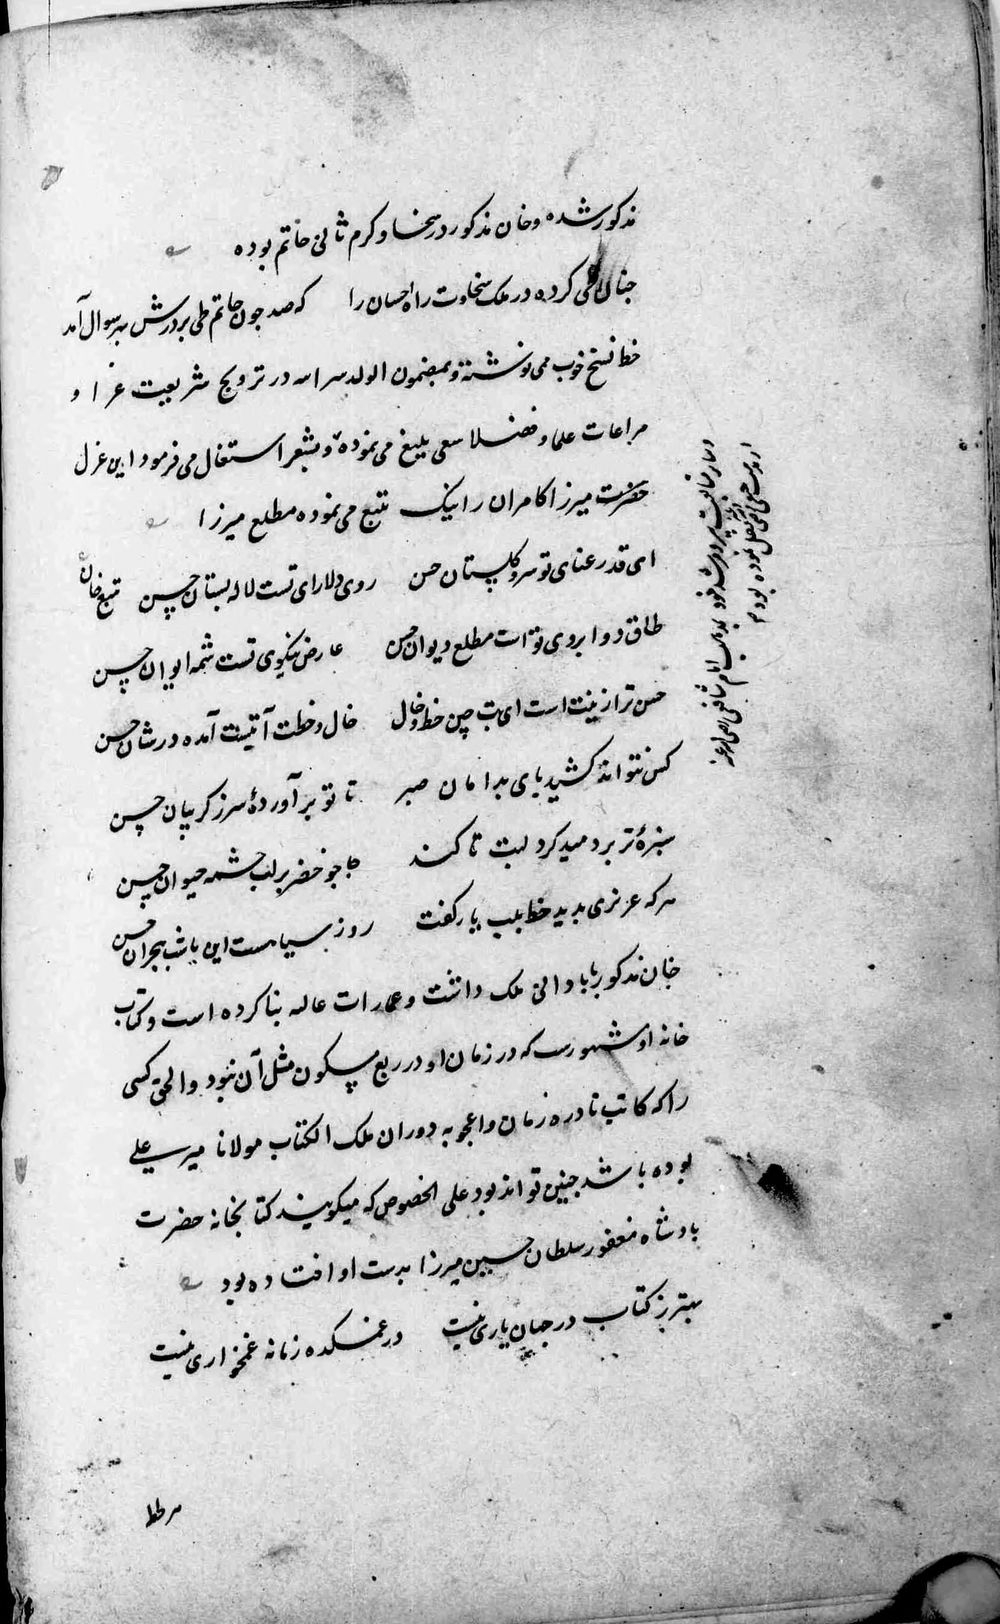 مذکور شده و خان مذکور در سخا و کرم ثانی حاتم بوده
چنان طی کرده در ملک سخاوت راه احسان را که صد جون حاتم طی بر درش بهر سوال آمد
خط نسخ خوب می نوشته و بمضمون الولد سر ابیه در ترویج شریعت غرا و
مراعات علما و فضلا سعی بلیغ می نموده و بشعر استغال می فرمود این غزل
حضرت میرزا کامران را نیک تتبع می نموده مطلع میرزا
ای قد رعنای تو سرو گلستان حسن روی دلارای تست لاله بستان حسن تتبع خان
طاق دو ابروی تو ات مطلع دیوان حسن عارض نیکوی تست شمسه ایوان حسن
حسن ترا زینت است ای بت چین خط و خال خال و خطت آیتیست آمده در شان حسن
کس نتواند کشید پای بدامان صبر تا تو برآوردۀ سر ز کریبان حسن
سبزۀ تر بردمید کرد لبت تا کند جا جو خضر بر لب چشمه حیوان حسن
هر که عزیزی بدید خط بلب یار کفت روز سیاهست این یا شب هجران حسن
خان مذکور یابا والی ملک داشت و عمارات عالیه بنا کرده است و کتاب
خانه او مشهورست که در زمان او در ربع مسکون مثل آن نبود و الحق کسی
را که کاتب نادره زمان و اعجوبه دوران ملک الکتاب مولانا میر علی
بوده باشد جنین تواند بود علی الخصوص که میکویند کتابخانه حضرت
بادشاه مغفور سلطان حسین میرزا بدست او افتاده بود
بهتر ز کتاب در جهان یاری نیست در غمکده زمانه غمخواری نیست